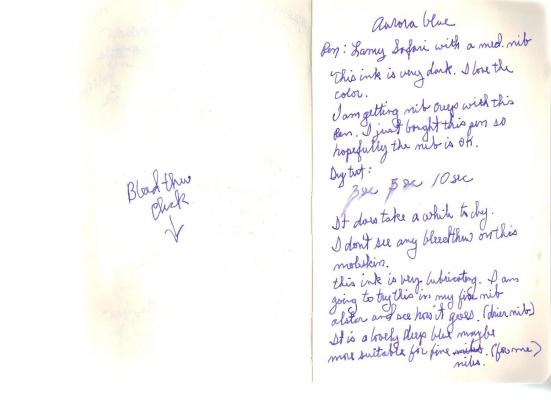 Bleedthru
Check
Aurora blue
Pen: Lamy Safari with a med. nib
This ink is very dark. I love the
color.
I am getting nib creep with this
pen. I just bought this pen so
hopefully the nib is OK.
Dry test:
3 sec 5 sec 10 sec
It does take a while to dry.
I don't see any bleedthru on this
moleskin.
this ink is very lubricating. I am
going to try this in my fine nib
alstar and see how it goes. (drier nib)
It is a lovely deep blue maybe
more suitable for fine nibs. (for me)
nibs.